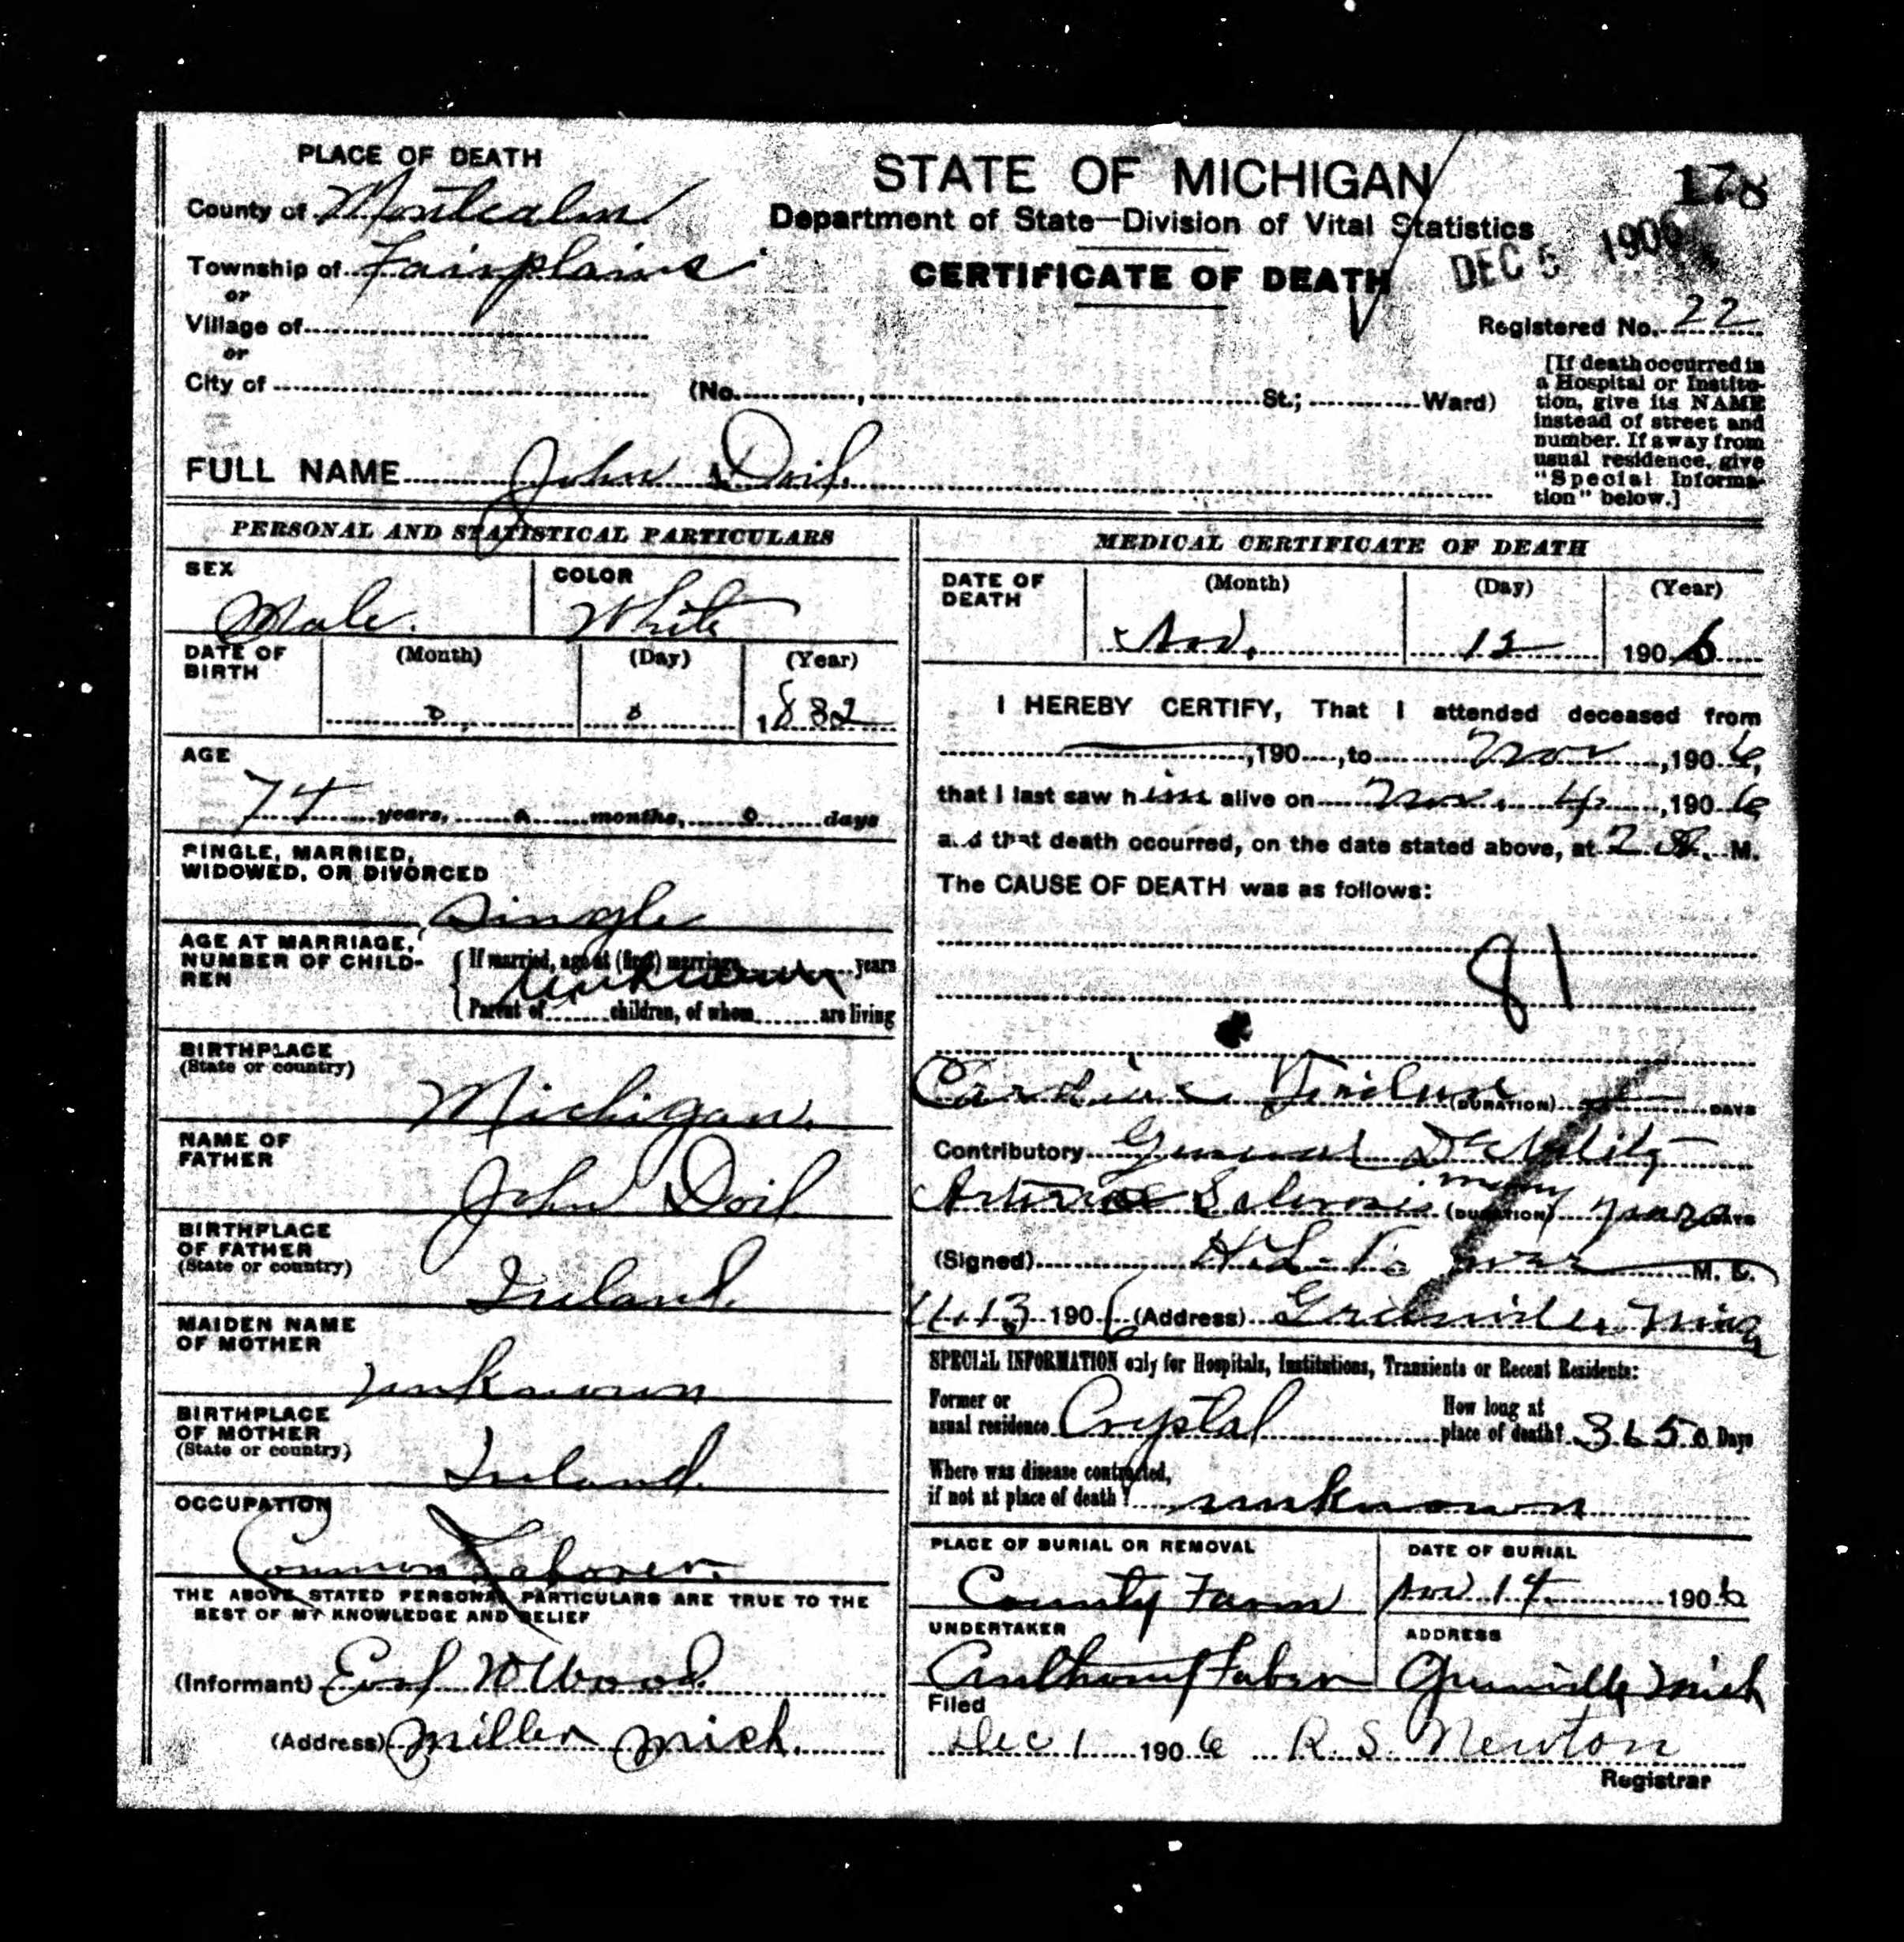 PLACE OF DEATH
County of Montcalm
Township of Fairplains
or
Village of
or
City of (No. , St.; Ward)
STATE OF MICHIGAN
Department of State—Division of Vital Statistics
CERTIFICATE OF DEATH
178
DEC 5 1906
Registered No. 22
[If death occurred in
a Hospital or Institu-
tion, give its NAME
instead of street and
number. If away from
usual residence, give
"Special Informa-
tion" below.]
FULL NAME John Doil
PERSONAL AND STATISTICAL PARTICULARS
SEX Male.
COLOR White
DATE OF BIRTH (Month) (Day) (Year)
0, 0 1832
AGE
74 years, 0 months, 0 days
SINGLE, MARRIED,
WIDOWED, OR DIVORCED
Single
AGE AT MARRIAGE,
NUMBER OF CHILD-
REN
If married, age at (first) marriage years
unknown
Parent of children, of whom are living
BIRTHPLACE
(State or country)
Michigan.
NAME OF
FATHER
John Doil
BIRTHPLACE
OF FATHER
(State or country)
Ireland.
MAIDEN NAME
OF MOTHER
unknown
BIRTHPLACE
OF MOTHER
(State or country)
Ireland.
OCCUPATION
Common Laborer.
THE ABOVE STATED PERSONAL PARTICULARS ARE TRUE TO THE
BEST OF MY KNOWLEDGE AND BELIEF
(Informant) Wood
(Address) Miller Mich.
MEDICAL CERTIFICATE OF DEATH
DATE OF DEATH (Month) (Day) (Year)
Nov. 12 1906
I HEREBY CERTIFY, That I attended deceased from
, 190 , to Nov , 1906,
that I last saw him alive on Nov. 4 , 1906
and that death occurred, on the date stated above, at 2 M.
The CAUSE OF DEATH was as follows:
81
Cardiac Failure (DURATION) DAYS
Contributory General Debility
Arterial Sclerosis (DURATION) many years DAYS
(Signed) H.L. M. D.
11-13 1906 (Address) Greenville Mich
SPECIAL INFORMATION only for Hospitals, Institutions, Transients or Recent Residents:
Former or
usual residence Crystal
How long at
place of death? 3650 Days
Where was disease contracted,
if not at place of death? unknown
PLACE OF BURIAL OR REMOVAL
County Farm
DATE OF BURIAL
Nov 14 1906
UNDERTAKER
Anthony Faber
ADDRESS
Greenville Mich
Filed
Dec 1 1906 R. S. Newton
Registrar